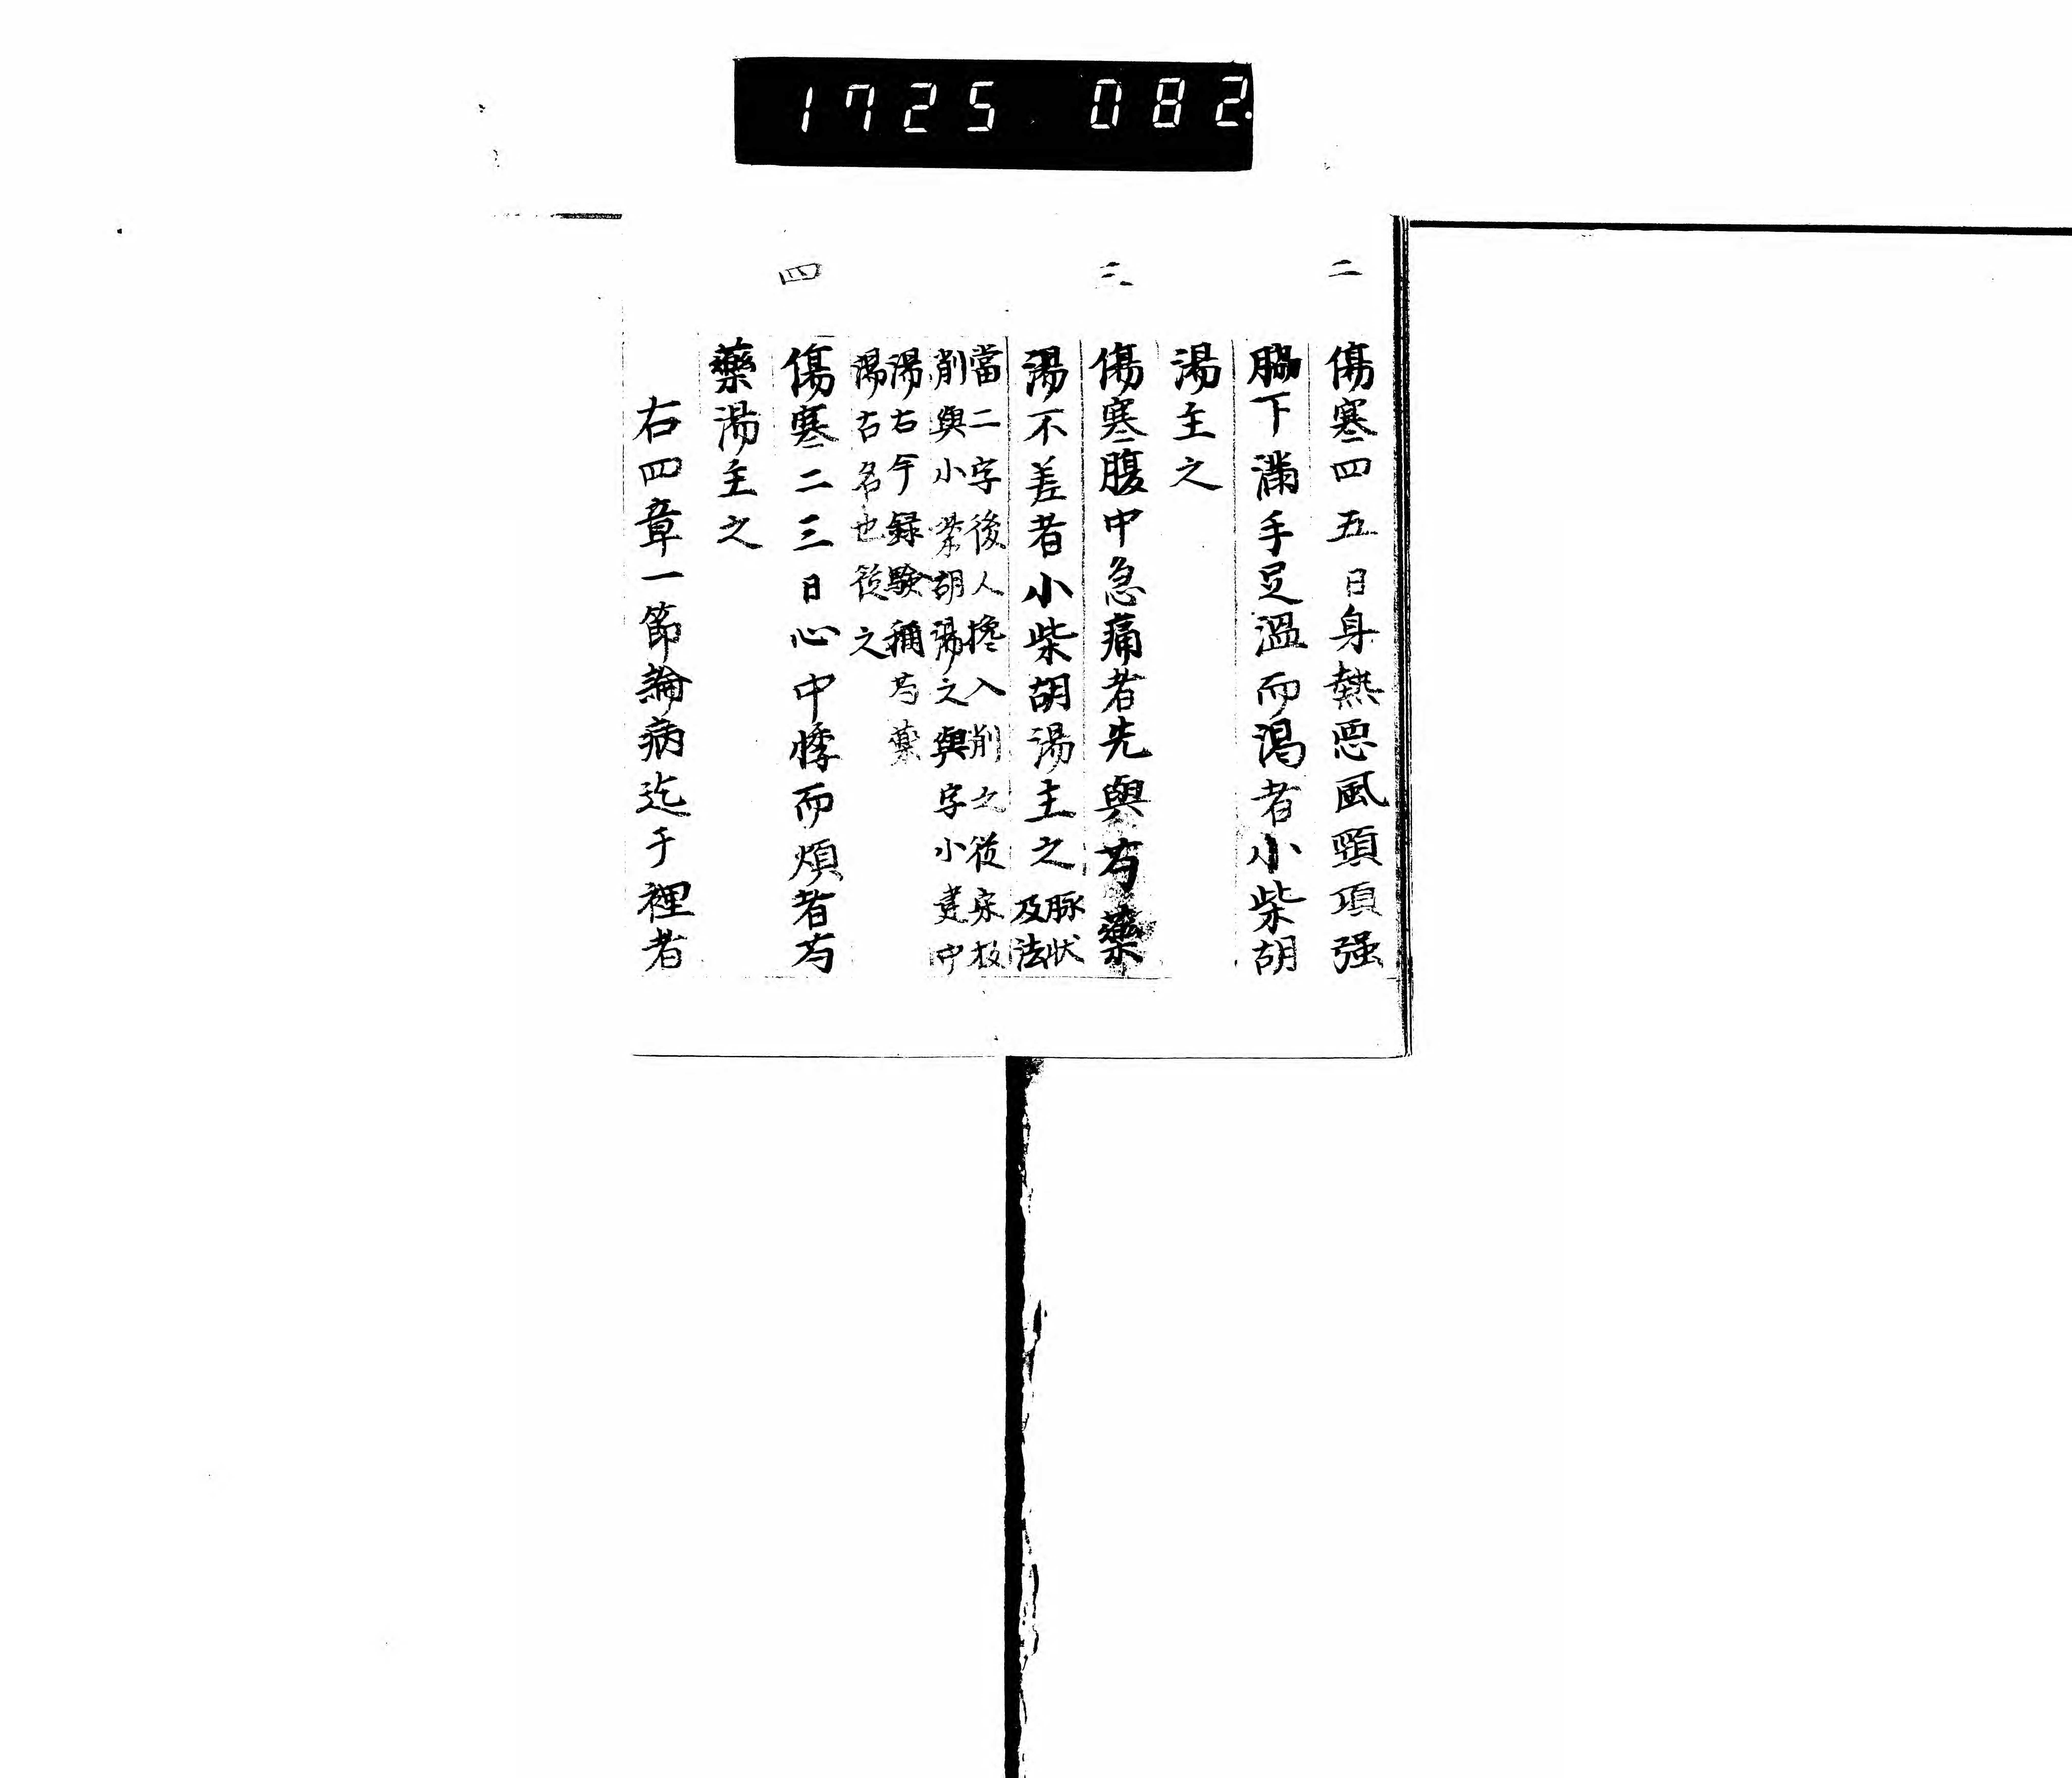 1725 082.
二
傷寒四五日身熱惡風頸項强
脇下滿手足溫而渴者小柴胡
湯主之
三
傷寒腹中急痛者先與芍藥
湯不差者小柴胡湯主之脉狀及法
當二字後人攙入削之從宋板
削與小柴胡湯之與字小建中
湯古今録驗稱芍藥
湯古名也從之
四
傷寒二三日心中悸而煩者芍
藥湯主之
右四章一節論病迄于裡者